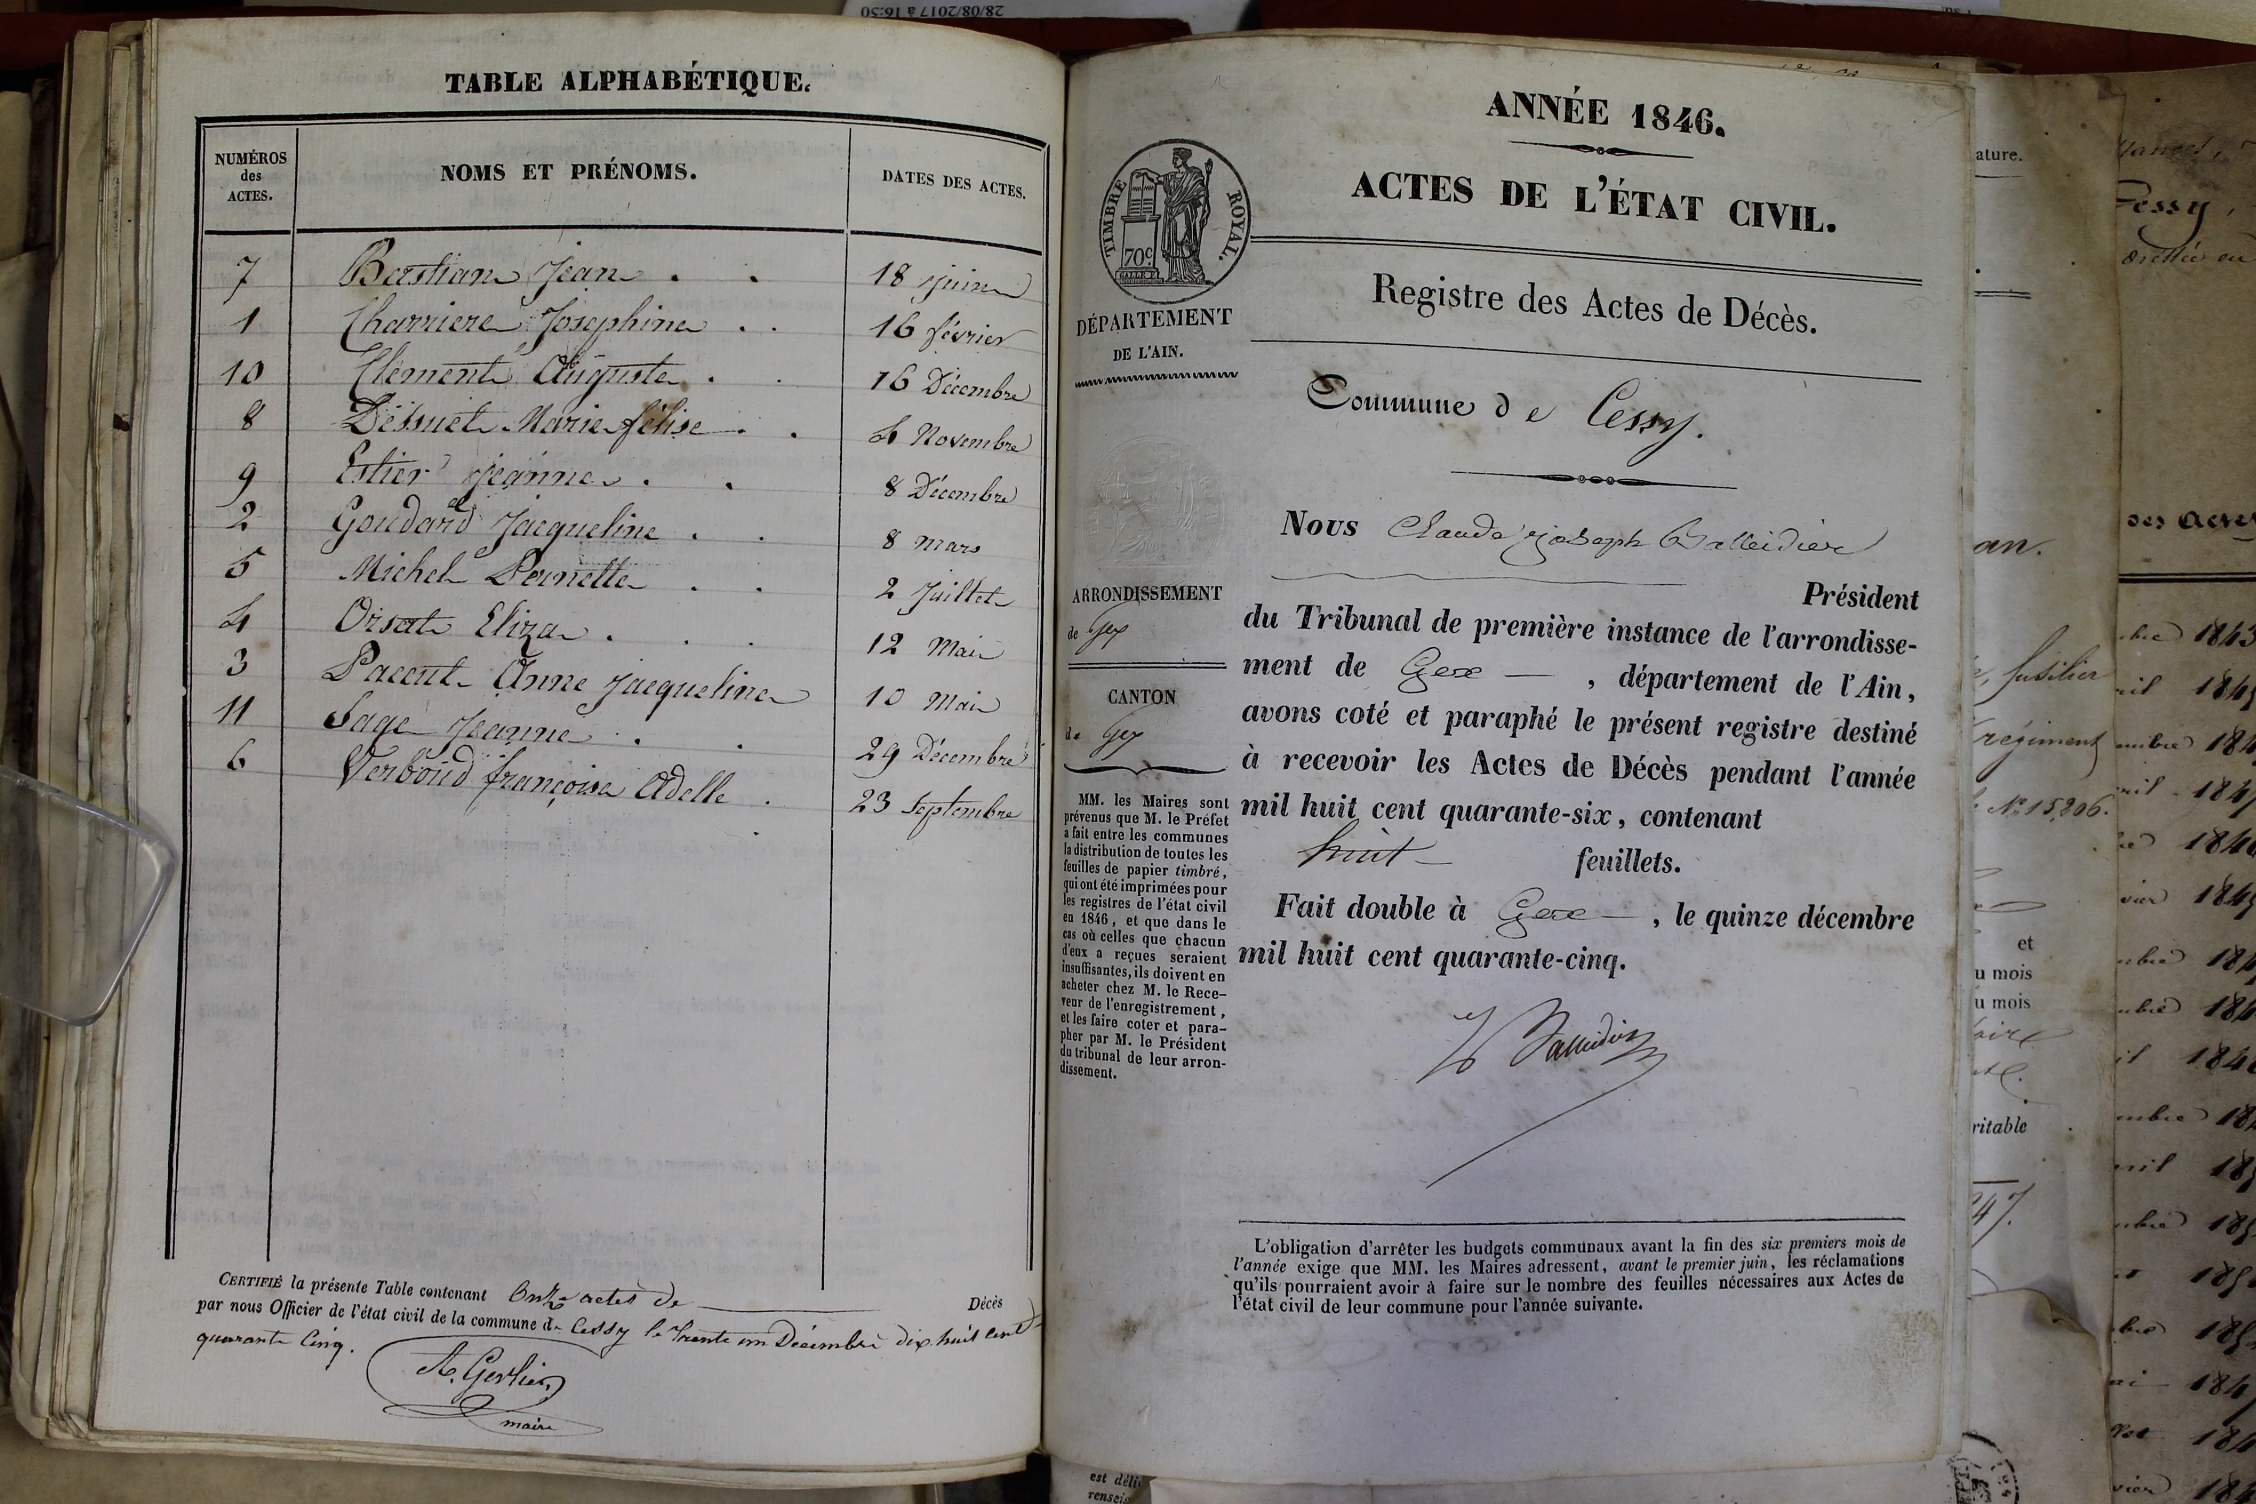 28/08/2017 à 16:50
TABLE ALPHABÉTIQUE.
NUMÉROS
des
ACTES.
NOMS ET PRÉNOMS.
DATES DES ACTES.
7 Bastian Jean . . 18 juin
1 Charriere Josephine . . 16 février
10 Clément Auguste . . 16 Décembre
8 Déssuet Marie félise . . 4 Novembre
9 Estier Jeanne . . 8 Décembre
2 Goudard Jacqueline . . 8 mars
5 Michel Pernette . . 2 Juillet
4 Orsat Eliza . . . 12 Mai
3 Pacent Anne Jacqueline 10 Mai
11 Sage Jeanne . . 29 Décembre
6 Verboud françoise Adelle . 23 Septembre
CERTIFIÉ la présente Table contenant Onze actes de Décès
par nous Officier de l'état civil de la commune de Cessy le Trente un Décembre dix huit cent
quarante Cinq.
A. Gerlier
maire
ANNÉE 1846.
ACTES DE L'ÉTAT CIVIL.
TIMBRE ROYAL.
70c.
DÉPARTEMENT
DE L'AIN.
Registre des Actes de Décès.
Commune de Cessy.
Nous Claude Joseph Balleidier
Président
ARRONDISSEMENT
de Gex
CANTON
de Gex
du Tribunal de première instance de l'arrondisse-
ment de Gex , département de l'Ain,
avons coté et paraphé le présent registre destiné
à recevoir les Actes de Décès pendant l'année
mil huit cent quarante-six, contenant
huit feuillets.
Fait double à Gex , le quinze décembre
mil huit cent quarante-cinq.
Balleidier
MM. les Maires sont
prévenus que M. le Préfet
a fait entre les communes
la distribution de toutes les
feuilles de papier timbré,
qui ont été imprimées pour
les registres de l'état civil
en 1846, et que dans le
cas où celles que chacun
d'eux a reçues seraient
insuffisantes, ils doivent en
acheter chez M. le Rece-
veur de l'enregistrement,
et les faire coter et para-
pher par M. le Président
du tribunal de leur arron-
dissement.
L'obligation d'arrêter les budgets communaux avant la fin des six premiers mois de
l'année exige que MM. les Maires adressent, avant le premier juin, les réclamations
qu'ils pourraient avoir à faire sur le nombre des feuilles nécessaires aux Actes de
l'état civil de leur commune pour l'année suivante.
ature.
an.
fusilier
régiment
No 15,206.
et
u mois
u mois
ritable
47.
des Actes
1843